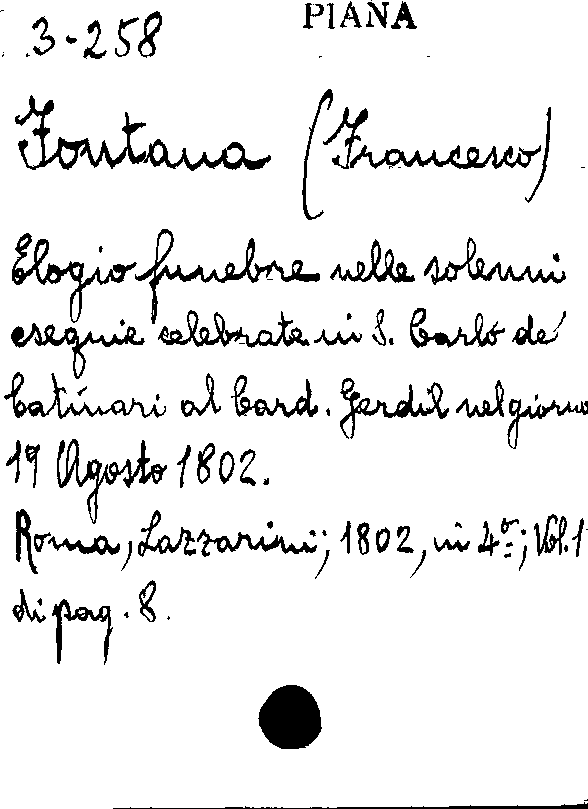 3-258
PIANA
Fontana (Francesco)
Elogio funebre nelle solenni
esequie celebrate in S. Carlo de'
Catinari al Card. Gerdil nel giorno
19 Agosto 1802.
Roma, Lazzarini; 1802, in 4º; Vol. 1
di pag. 8.